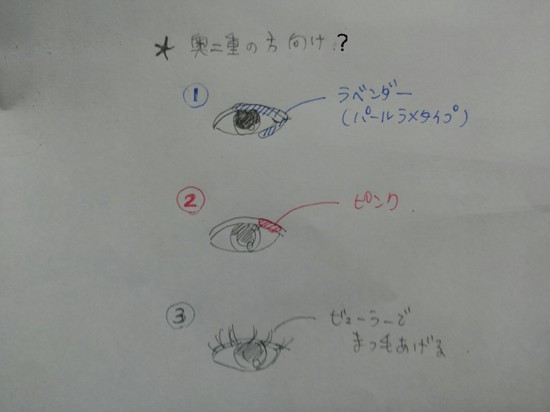 * 奥二重の方向け?
① ラベンダー
(パールラメタイプ)
② ピンク
③ ビューラーで
まつもあげる